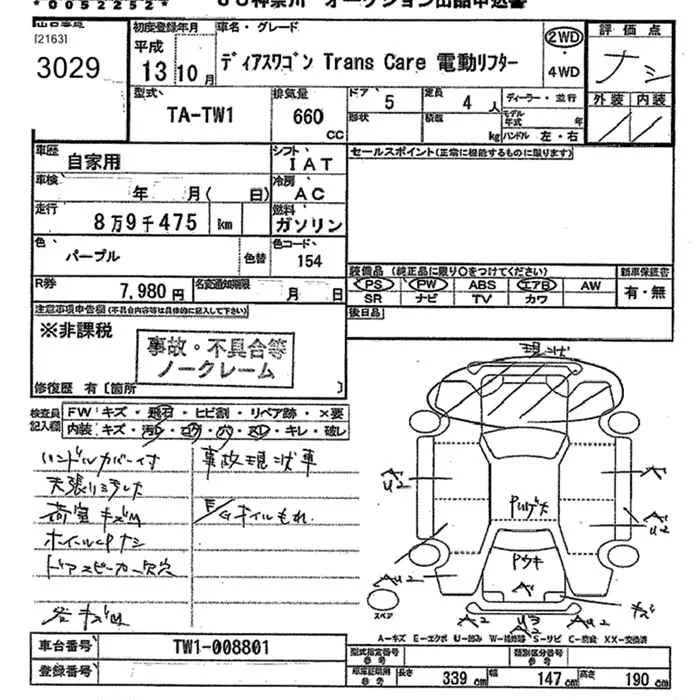 *0052252*
JU神奈川 オークション出品申込書
[2163]
3029
初度登録年月
平成
13年10月
車名・グレード
ディアスワゴン Trans Care 電動リフター
2WD
・
4WD
評価点
ナシ
外装 内装
型式
TA-TW1
排気量
660
CC
ドア 5
定員 4 人
形状
積載 kg
ディーラー・並行
モデル年式 年
ハンドル 左・右
車歴
自家用
シフト
IAT
セールスポイント(正常に機能するものに限ります)
車検
年 月( 日)
冷房
AC
走行
8万9千475 km
燃料
ガソリン
色
パープル
色替
色コード
154
装備品 (純正品に限り○をつけてください)
新車保証書
PS PW ABS エアB AW
有・無
SR ナビ TV カワ
R券
7,980円
名変通知期限
月 日
後日品
注意事項申告欄(不具合内容等は具体的に記入して下さい)
※非課税
事故・不具合等
ノークレーム
修復歴 有〔箇所 〕
現状
検査員
記入欄
FW キズ・飛石・ヒビ割・リペア跡・×要
内装 キズ・汚レ・コゲ・穴・スレ・キレ・破レ
ハンドルカバー付
事故現状車
天張リヨゴレ
荷室キズM
Egオイルもれ
ホイールCPナシ
ドアスピーカー欠穴
各キズM
Pウキ
キズ
スペア
A2
A-キズ E-エクボ U-凹み W-補修跡 S-サビ C-腐食 X-要交換 XX-交換済
車台番号
TW1-008801
登録番号
型式指定番号
参考
類別区分番号
参考
参考
長さ 339 cm 幅 147 cm 高さ 190 cm